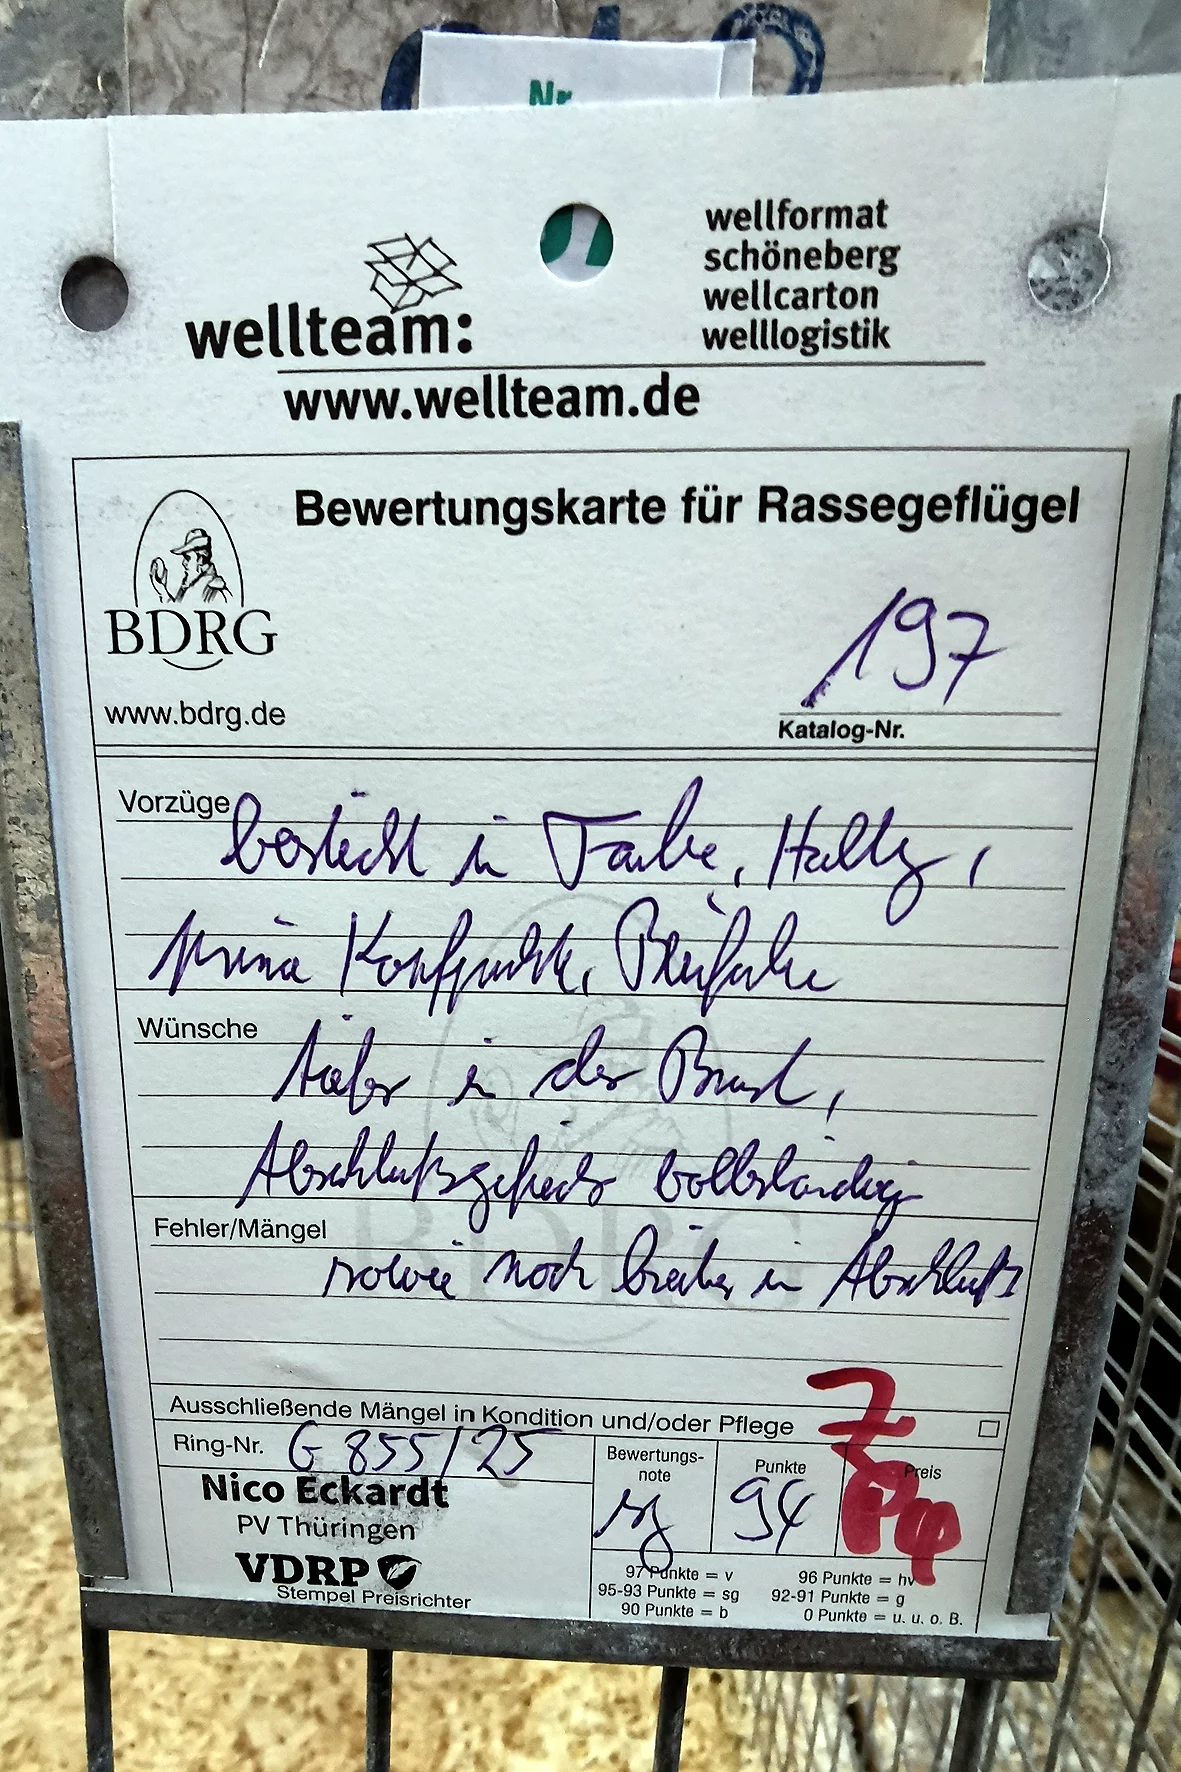 Nr.
wellteam:
wellformat
schöneberg
wellcarton
welllogistik
www.wellteam.de
BDRG
www.bdrg.de
Bewertungskarte für Rassegeflügel
197
Katalog-Nr.
Vorzüge
besticht in Farbe, Haltg,
prima Kopfpunkte, Beinfarbe
Wünsche
tiefer in der Brust,
Abschlußgefieder vollständig
Fehler/Mängel
sowie noch breiter in Abschluß
Ausschließende Mängel in Kondition und/oder Pflege
Z
Ring-Nr. G 855/25
Nico Eckardt
PV Thüringen
VDRP
Stempel Preisrichter
Bewertungs-
note
sg
Punkte
94
Preis
97 Punkte = v
96 Punkte = hv
95-93 Punkte = sg
92-91 Punkte = g
90 Punkte = b
0 Punkte = u. u. o. B.